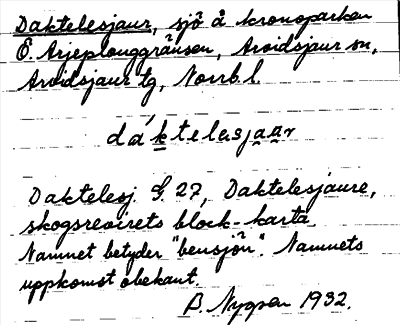 Daktelesjaur, sjö å kronoparken
Ö. Arjeplouggränsen, Arvidsjaur sn,
Arvidsjaur tg, Norrb. l.
dáktelesjaar
Daktelesj. G. 27, Daktelesjaure,
skogsrevirets block-karta
Namnet betyder "bensjön". Namnets
uppkomst obekant.
B. Nygren 1932.